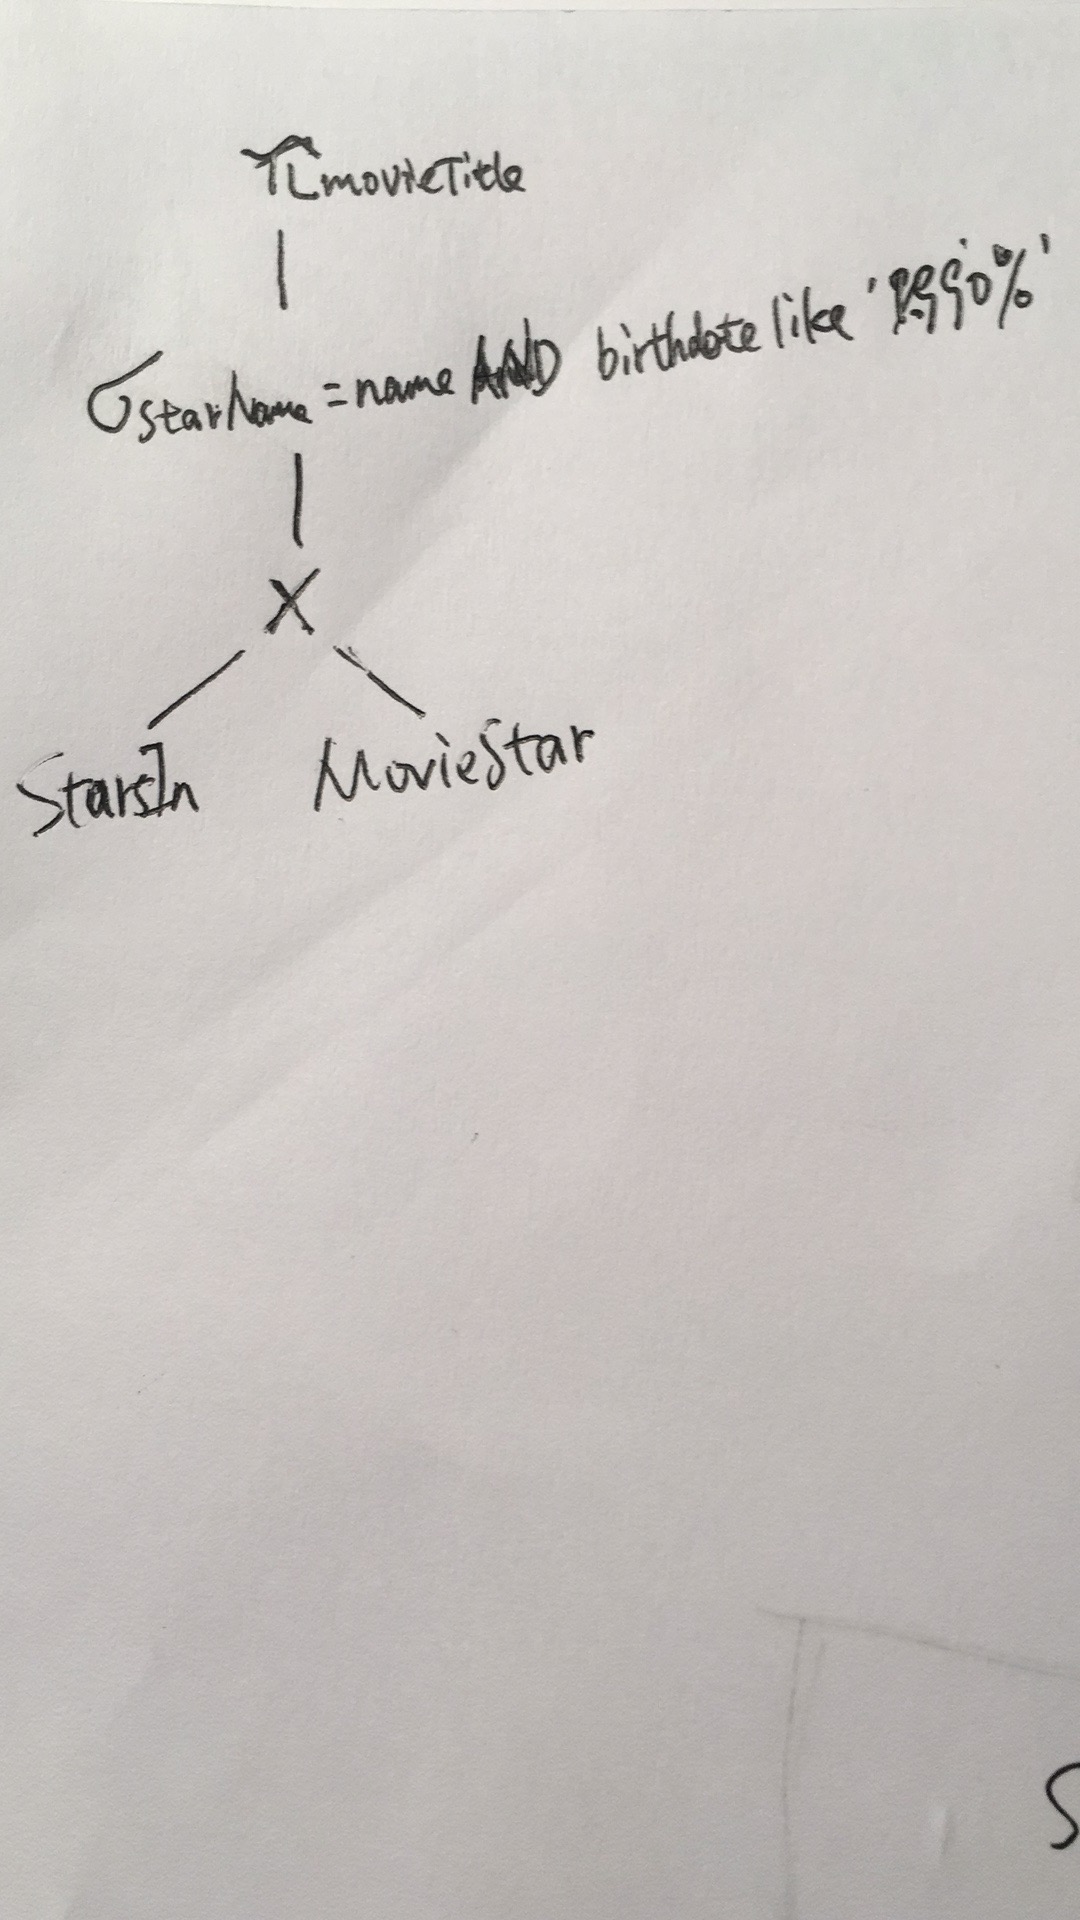 π movieTitle
σ starName = name AND birthdate like '%%'
X
StarsIn MovieStar
S